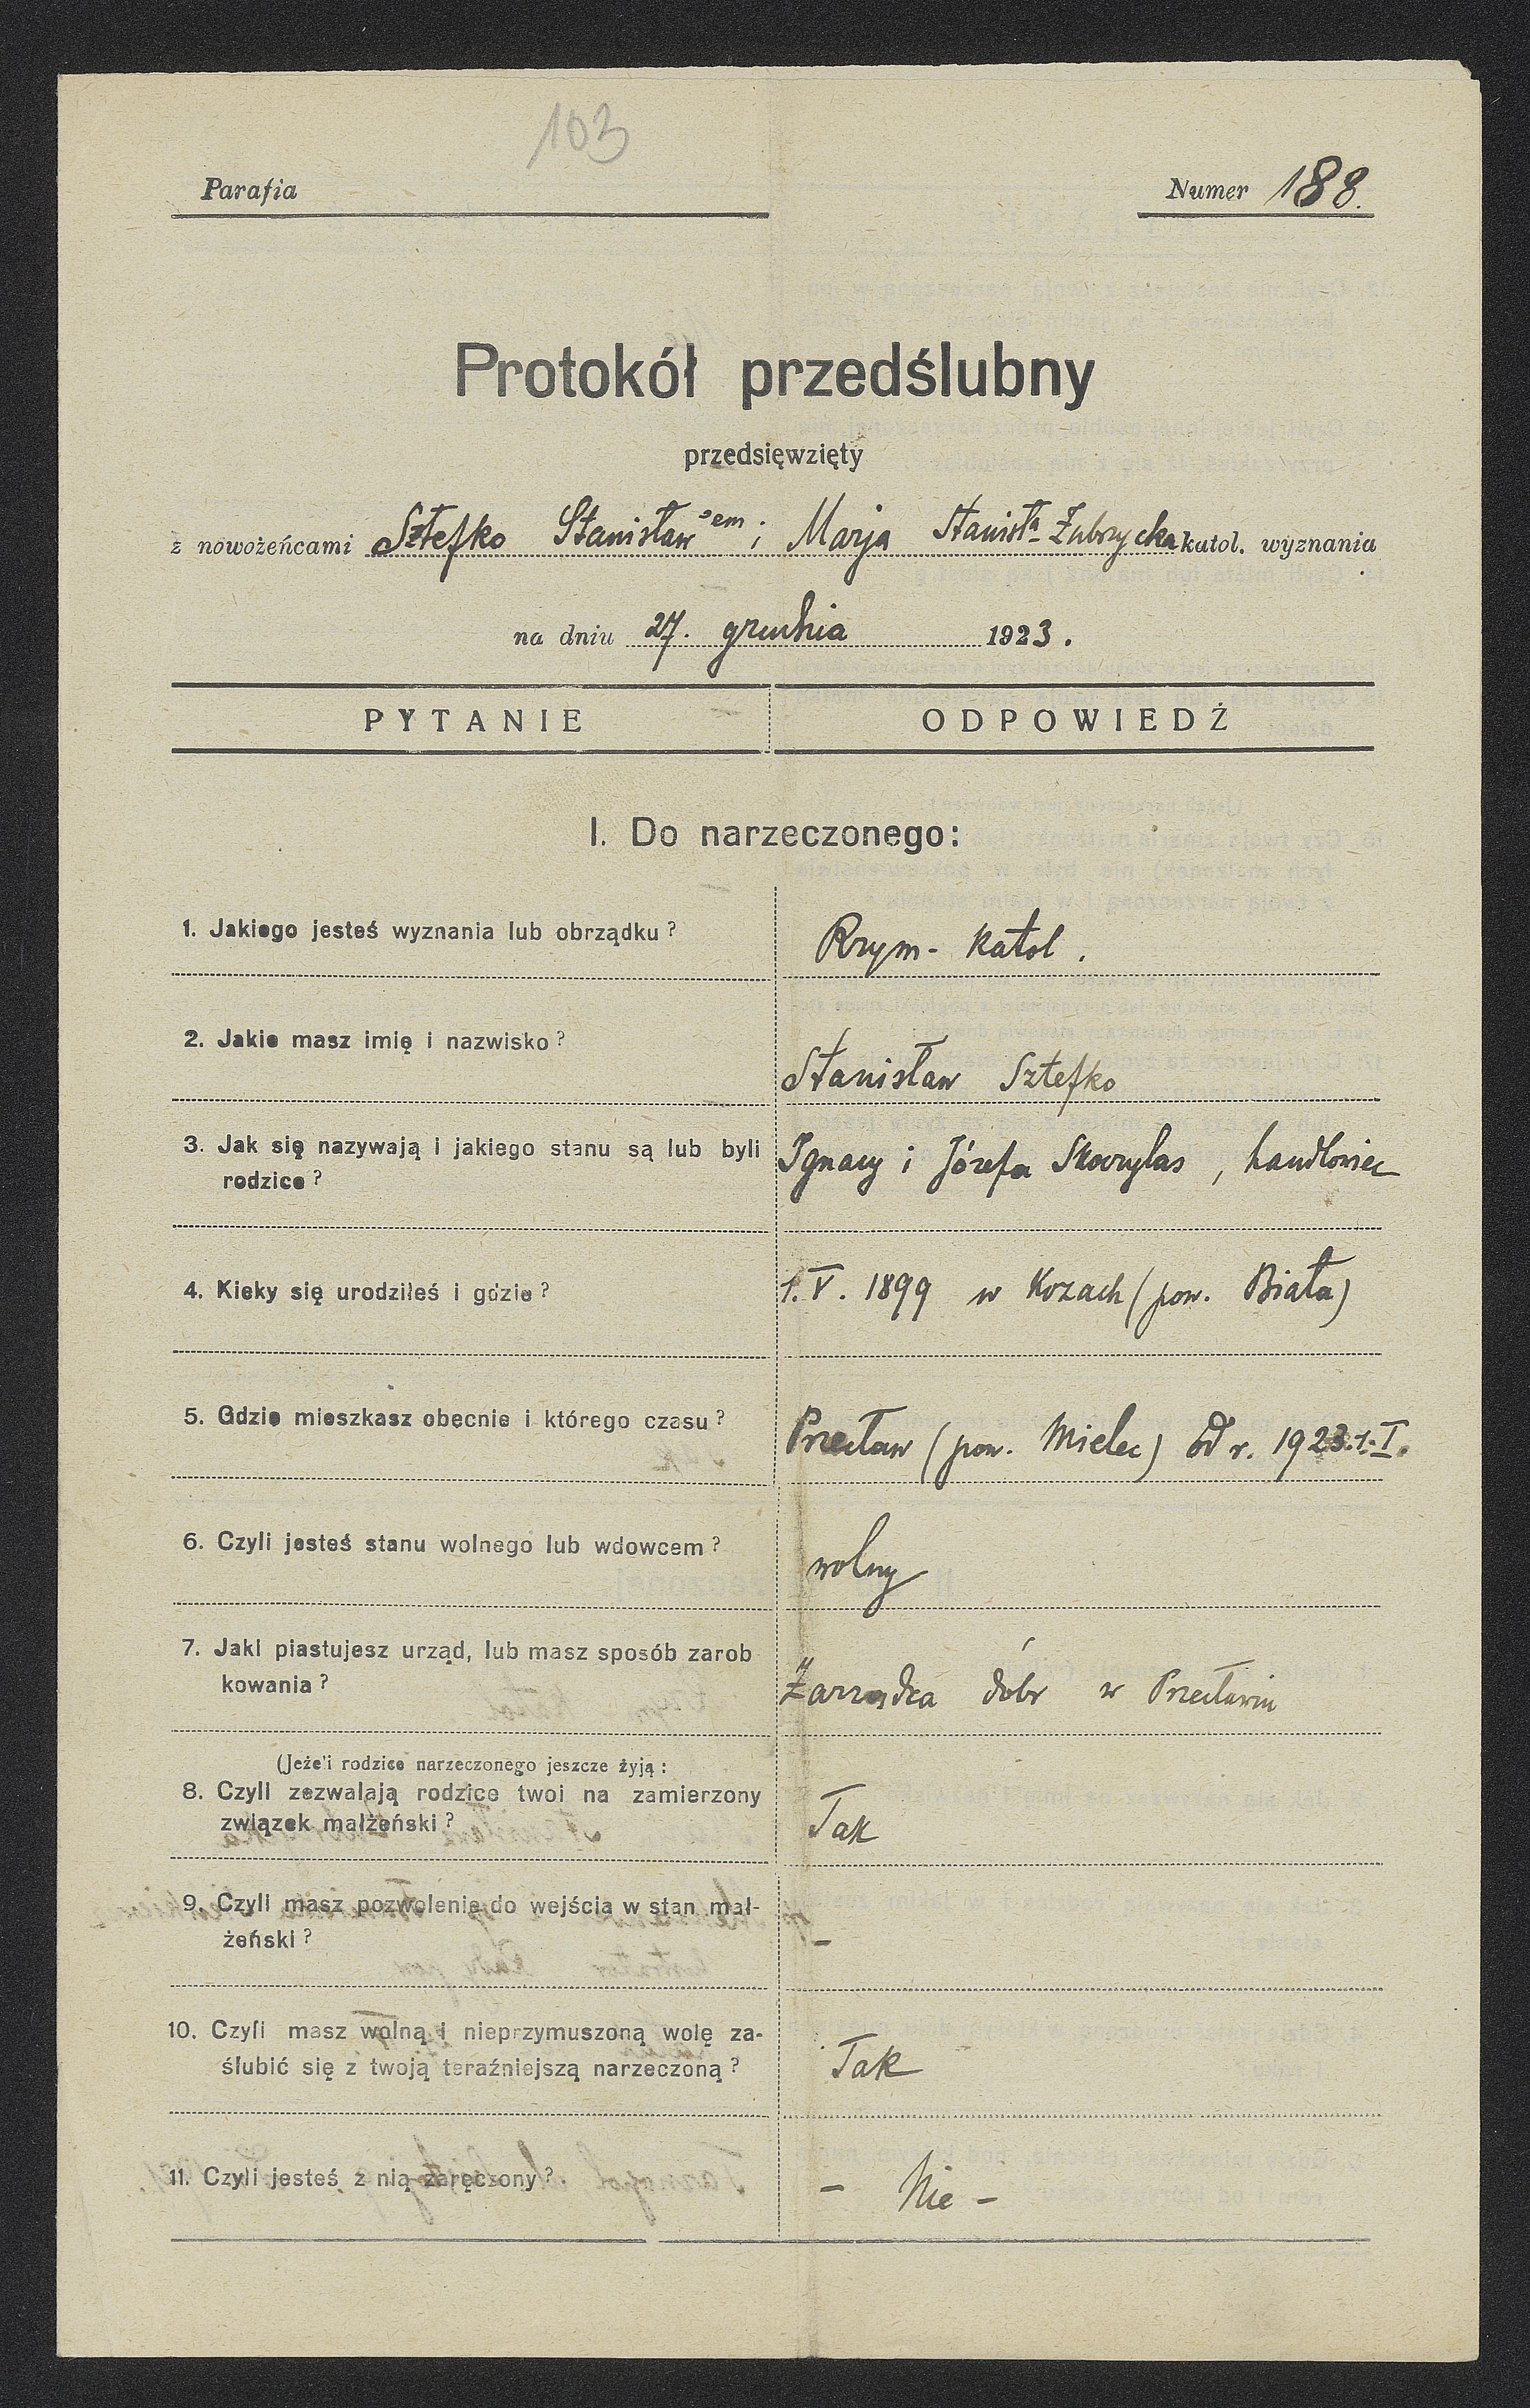 103
Parafia
Numer 188.
Protokół przedślubny
przedsięwzięty
z nowożeńcami Sztefko Stanisławem i Marja Stanisła Zubrycka katol. wyznania
na dniu 27. grudnia 1923.
PYTANIE ODPOWIEDŹ
I. Do narzeczonego:
1. Jakiego jesteś wyznania lub obrządku? Rzym- katol.
2. Jakie masz imię i nazwisko?
Stanisław Sztefko
3. Jak się nazywają i jakiego stanu są lub byli Ignacy i Józefa , handlowiec
rodzice?
4. Kieky się urodziłeś i gdzie? 1. V. 1899 w Kozach (pow. Biała)
5. Gdzie mieszkasz obecnie i którego czasu?
Przecław (pow. Mielec) od r. 1923.1.I.
6. Czyli jesteś stanu wolnego lub wdowcem?
wolny
7. Jaki piastujesz urząd, lub masz sposób zarob
kowania? Zarządca dóbr w Przecławiu
(Jeże'i rodzice narzeczonego jeszcze żyją:
8. Czyli zezwalają rodzice twoi na zamierzony
związek małżeński? Tak
9. Czyli masz pozwolenie do wejścia w stan mał-
żeński? –
10. Czyli masz wolną i nieprzymuszoną wolę za-
ślubić się z twoją teraźniejszą narzeczoną? Tak
11. Czyli jesteś z nią zaręczony? – Nie –